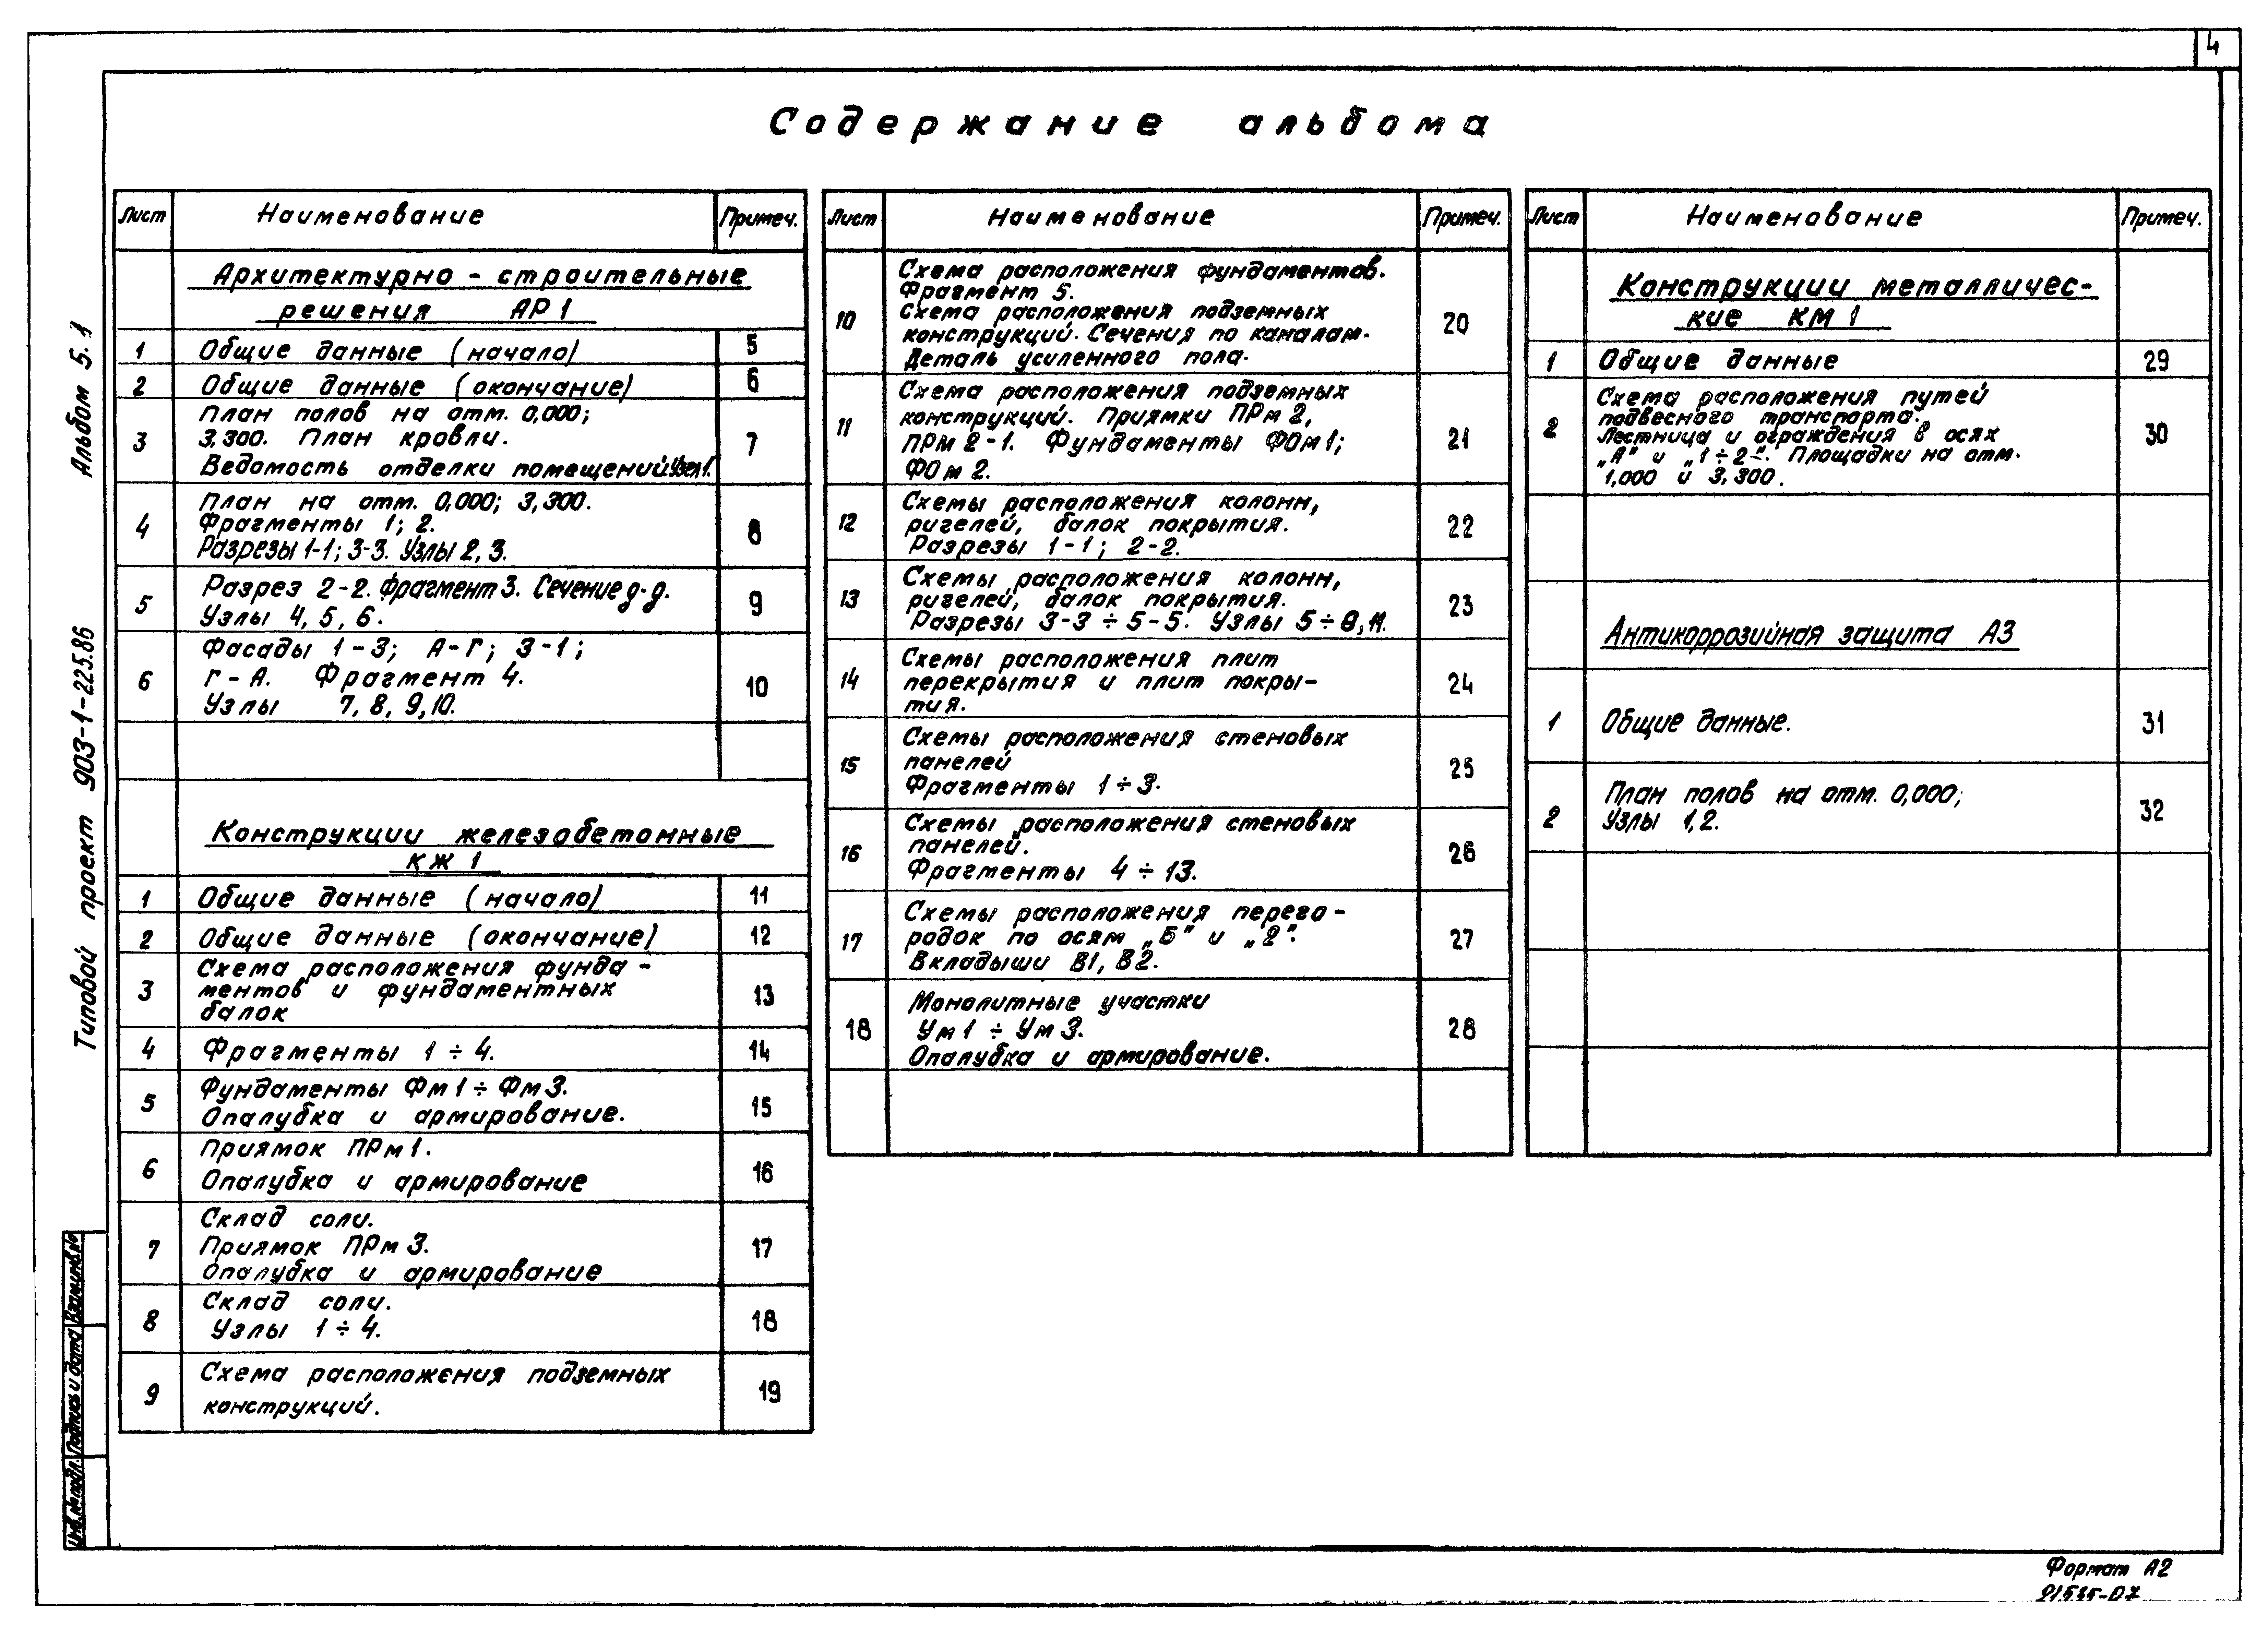 4
Содержание альбома
Альбом 5.1
Типовой проект 903-1-225.86
Лист Наименование Примеч.
Архитектурно - строительные
решения АР1
1 Общие данные (начало) 5
2 Общие данные (окончание) 6
План полов на отм. 0,000;
3 3,300. План кровли. 7
Ведомость отделки помещений. Узел 1.
План на отм. 0,000; 3,300.
4 Фрагменты 1; 2. 8
Разрезы 1-1; 3-3. Узлы 2, 3.
5 Разрез 2-2. Фрагмент 3. Сечение д-д. 9
Узлы 4, 5, 6.
Фасады 1-3; А-Г; 3-1;
6 Г-А. Фрагмент 4. 10
Узлы 7, 8, 9, 10.
Конструкции железобетонные
КЖ1
1 Общие данные (начало) 11
2 Общие данные (окончание) 12
Схема расположения фунда-
3 ментов и фундаментных 13
балок
4 Фрагменты 1÷4. 14
5 Фундаменты Фм1÷Фм3. 15
Опалубка и армирование.
6 Приямок ПРм1. 16
Опалубка и армирование
Склад соли.
7 Приямок ПРм3. 17
Опалубка и армирование
8 Склад соли. 18
Узлы 1÷4.
9 Схема расположения подземных 19
конструкций.
Лист Наименование Примеч.
Схема расположения фундаментов.
Фрагмент 5.
10 Схема расположения подземных 20
конструкций. Сечения по каналам.
Деталь усиленного пола.
Схема расположения подземных
11 конструкций. Приямки ПРм2, 21
ПРм2-1. Фундаменты ФОм1;
ФОм2.
Схемы расположения колонн,
12 ригелей, балок покрытия. 22
Разрезы 1-1; 2-2.
Схемы расположения колонн,
13 ригелей, балок покрытия. 23
Разрезы 3-3÷5-5. Узлы 5÷8, 11.
Схемы расположения плит
14 перекрытия и плит покры- 24
тия.
Схемы расположения стеновых
15 панелей 25
Фрагменты 1÷3.
Схемы расположения стеновых
16 панелей. 26
Фрагменты 4÷13.
Схемы расположения перего-
17 родок по осям „Б" и „2". 27
Вкладыши В1, В2.
Монолитные участки
18 Ум1÷Ум3. 28
Опалубка и армирование.
Лист Наименование Примеч.
Конструкции металличес-
кие КМ1
1 Общие данные 29
Схема расположения путей
подвесного транспорта.
2 Лестница и ограждения в осях 30
„А" и „1÷2". Площадки на отм.
1,000 и 3,300.
Антикоррозийная защита АЗ
1 Общие данные. 31
2 План полов на отм. 0,000; 32
Узлы 1, 2.
Инв.№ подл. Подпись и дата Взам.инв.№
Формат А2
21535-07